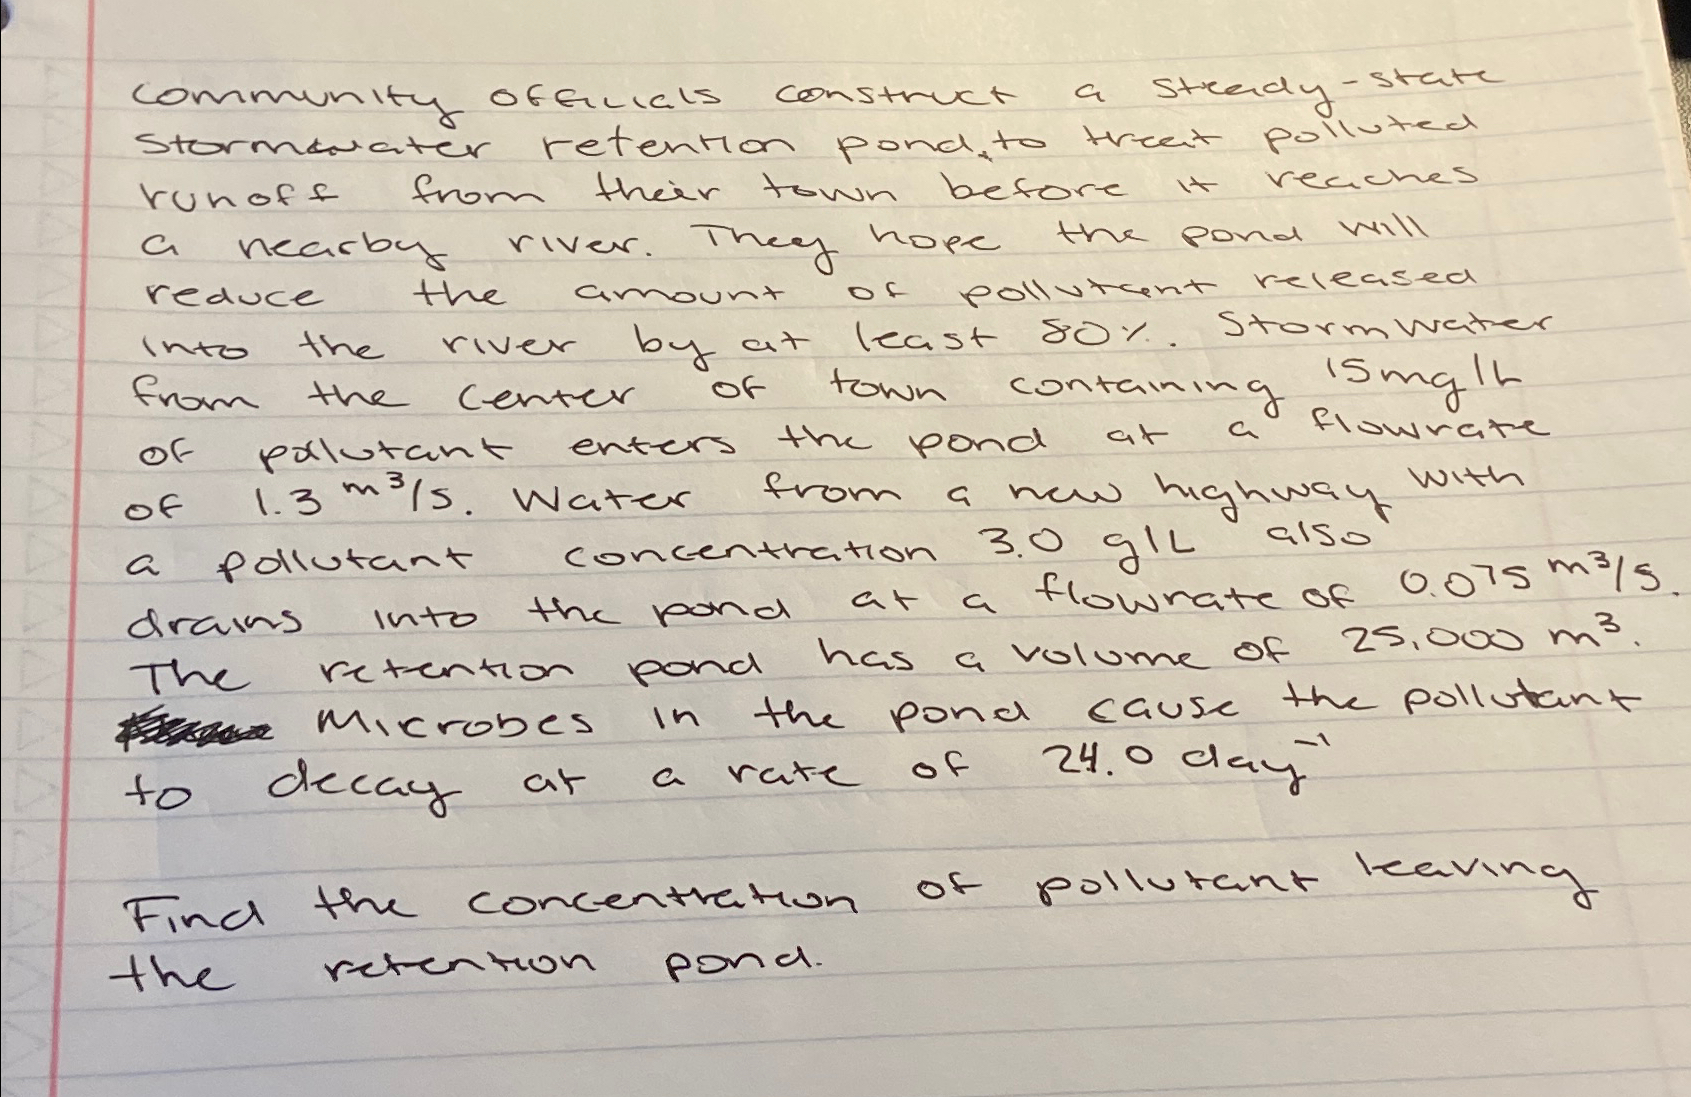 Community officials construct a steady-state
stormwater retention pond, to treat polluted
runoff from their town before it reaches
a nearby river. They hope the pond will
reduce the amount of pollutant released
into the river by at least 80%. Stormwater
from the center of town containing 15mg/L
of pollutant enters the pond at a flowrate
of 1.3 m³/s. Water from a new highway with
a pollutant concentration 3.0 g/L also
drains into the pond at a flowrate of 0.075 m³/s.
The retention pond has a volume of 25,000 m³.
Microbes in the pond cause the pollutant
to decay at a rate of 24.0 day⁻¹
Find the concentration of pollutant leaving
the retention pond.